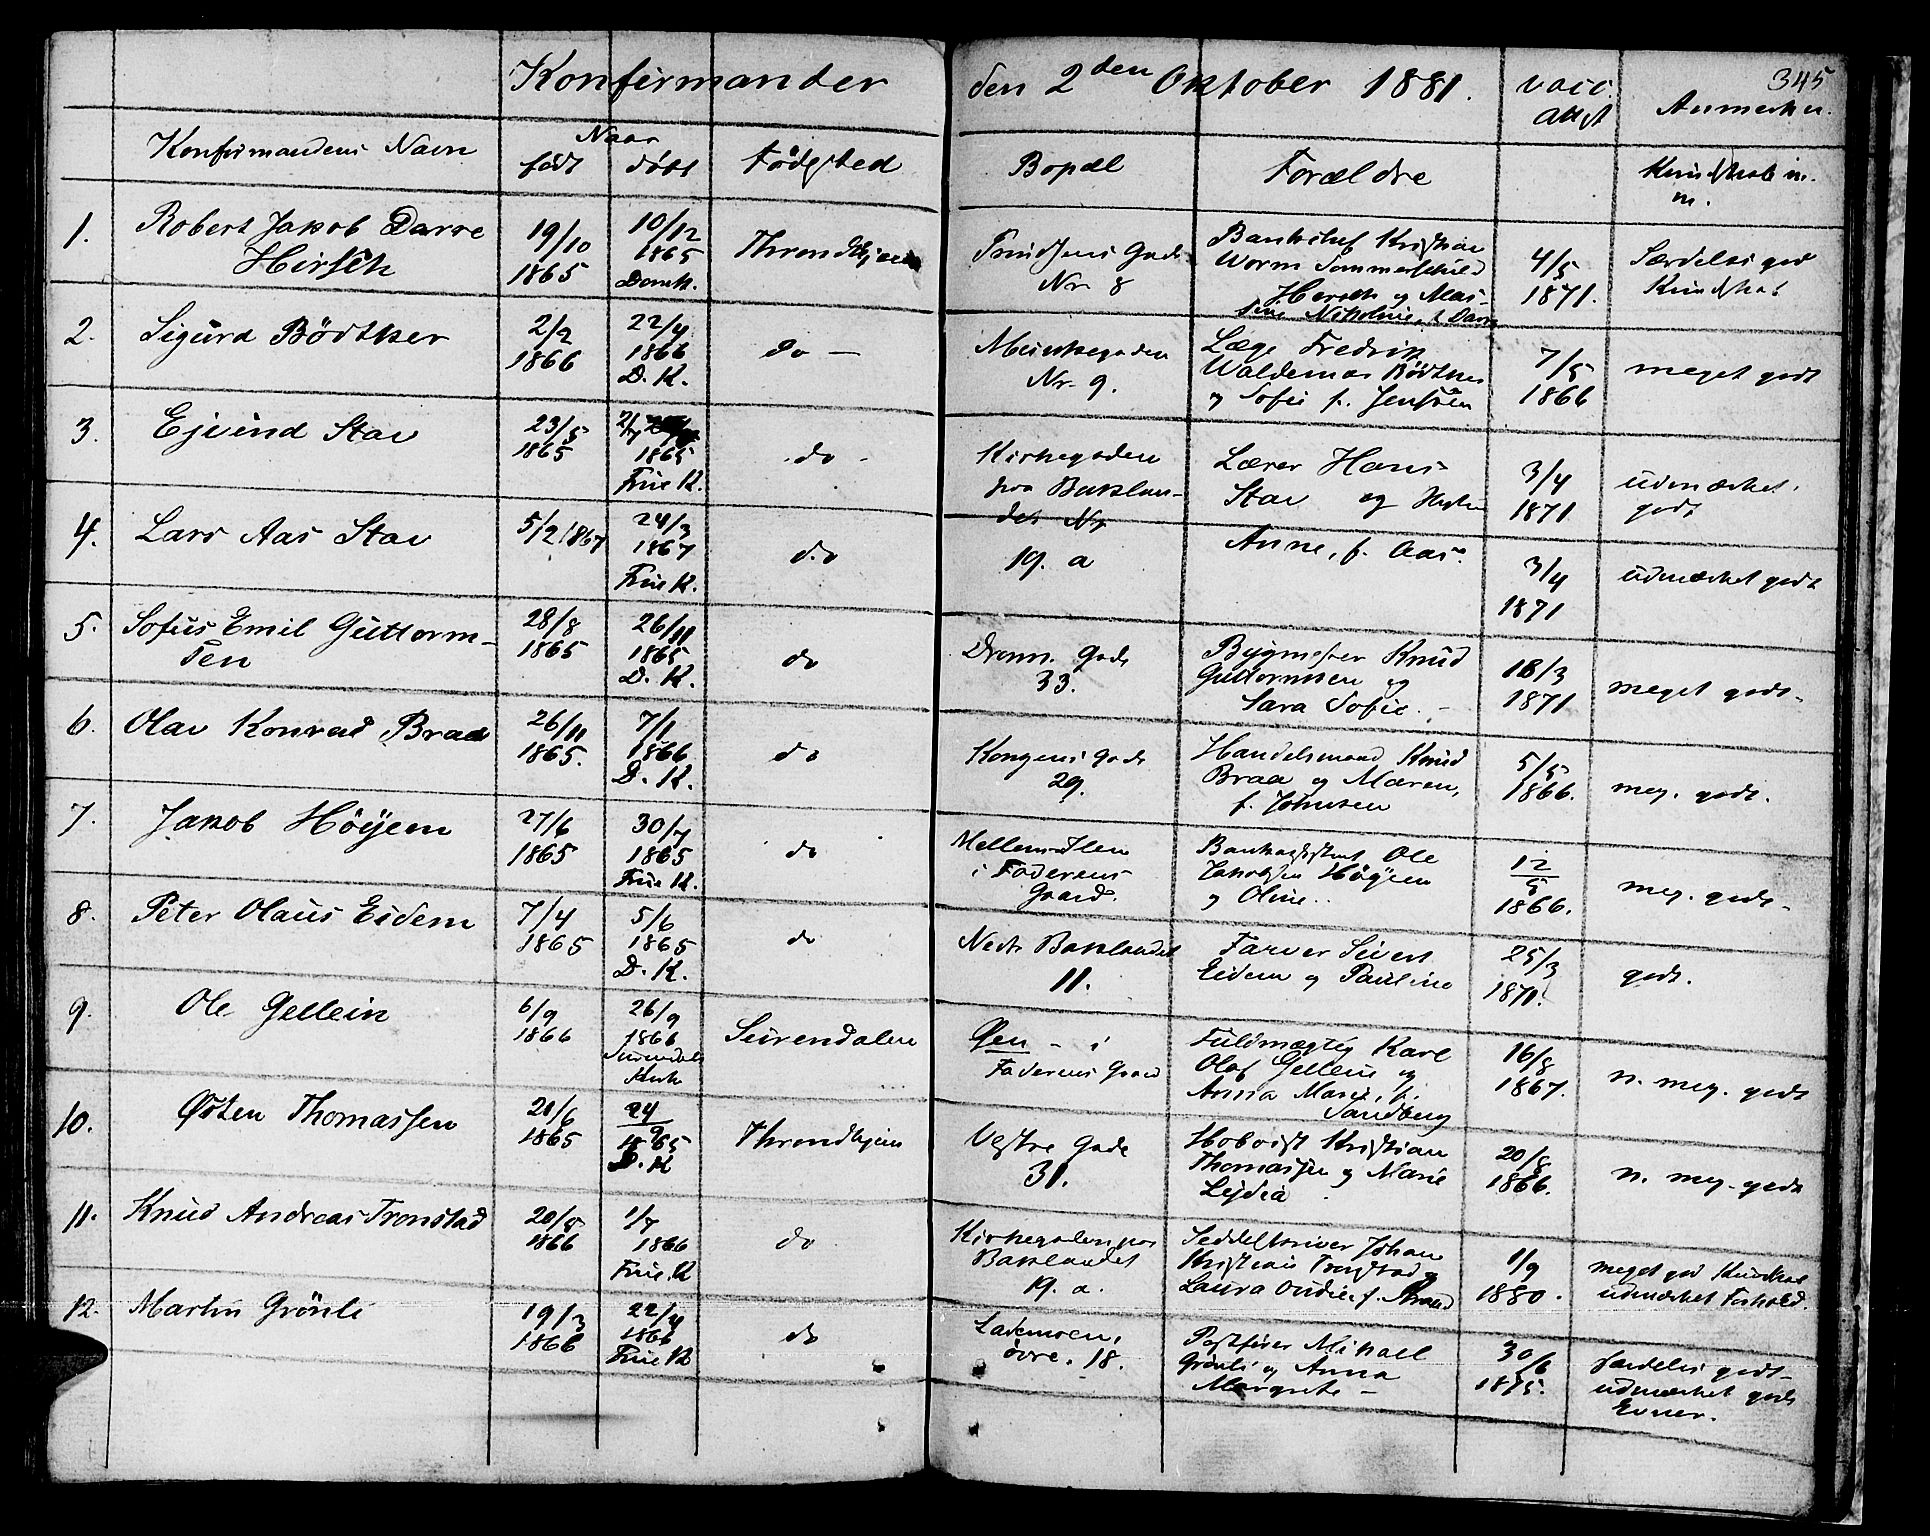 345
Konfirmander den 2den Oktober 1881. vacc. Attst Anmerkn.
Konfirmandens Navn Naar født døbt Fødested Bopæl Forældre Kundskab m. m.
1. Robert Jakob Darre 19/10 10/12 Throndhjem Bankchef Kristian 4/5 Særdeles god
Hirsch 1865 1865 Domk. Nr. 8 Worm Sommerschield 1871. Kundskab
Hersch og Mas-
sine Nikoline, f. Darre
2. Sigurd Bödtker 2/2 22/4 do — Munkegaden Læge Fredrik 7/5 meget godt
1866 1866 D. K. Nr. 9. Waldemar Bödtker 1866
og Sofie f. Jenssen
3. Ejvind Stav 23/5 2/7 do Kirkegaden Lærer Hans 3/4 udmærket
1865 1865 Frue K. paa Baklan- Stav og Hustru 1871 godt
det Nr
4. Lars Aas Stav 5/2 1867 24/3 do 19. a Anne, f. Aas. 3/4 udmærket godt
1867 Frue K. 1871
5. Sofus Emil Guttorm- 28/8 26/11 do Dronn. Gade Bygmester Knud 18/3 meget godt.
sen 1865 1865 D. K. 33. Guttormsen og 1871
Sara Sofie. -
6. Olav Konrad Braa 26/11 7/1 do Kongens Gade Handelsmand Knud 5/5 meg. godt.
1865. 1866 D. K. 29. Braa og Maren, 1866.
f. Johnsen
7. Jakob Höyem 27/6 30/7 do Mellem-Ilen Bankassistent Ole 12/5 meg. godt.
1865 1865 Frue K. i Faderens Jakobsen Höyem 1866.
Gaard. og Oline..
8. Peter Olaus Eidem 7/4 5/6 do Nedr. Baklandet Farver Sivert 25/3 godt.
1865 1865 D. K. 11. Eidem og Pauline 1871.
9. Ole Gellein 6/9 26/9 Surendalen Øen - i Fuldmægtig Karl 16/8 n. meg. godt
1866 1866 Surendals Kirke Faderens Gaard Olaf Gellein og 1867.
Anna Marie, f.
Sandberg
10. Østen Thomassen 21/6 24/9 Throndhjem Vestre Gade Kristian 20/8 n. meg. godt
1865 1865 D. K 31. Thomassen og Marie 1866.
Lydia
11. Knud Andreas Tronstad 20/5 1/7 do Kirkegaden paa Seddelskriver Johan 1/9 meget god Kundskab
1866 1866 Frue. K Baklandet Kristian Tronstad og 1880. udmærket Forhold.
19. a. Laura f.
12. Martin Grönli 19/3 22/4 do Lademoen, Postfører Mikael 30/6 særdeles godt
1866 1866 Frue K övre. 18. Grönli og Anna 1875. udmærket gode
Margrete — Evner.